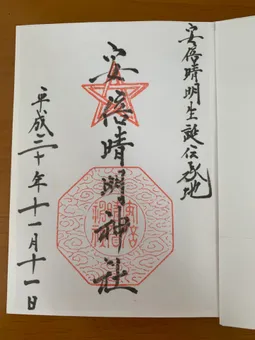 安倍晴明生誕伝承地
安倍晴明神社
平成二十年十一月十一日